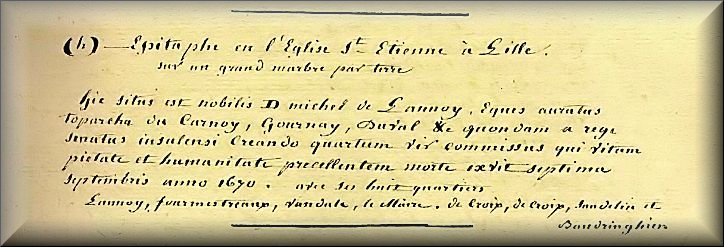 (h) — Epitaphe en l'Eglise St. Etienne à Lille.
sur un grand marbre par terre
hic situs est nobilis D michel de Lannoy, Eques auratus
toparcha du Carnoy, Gournay, Duval &c quondam a rege
senatus insulensi Creando quartum vir commissus qui vitam
pietate et humanitate precellentem morte exvit septima
septembris anno 1670. avec ses huit quartiers
Lannoy, fourmestreaux, vandale, le Maire. de Croix, de Croix, Sandelin et
Baudringhien